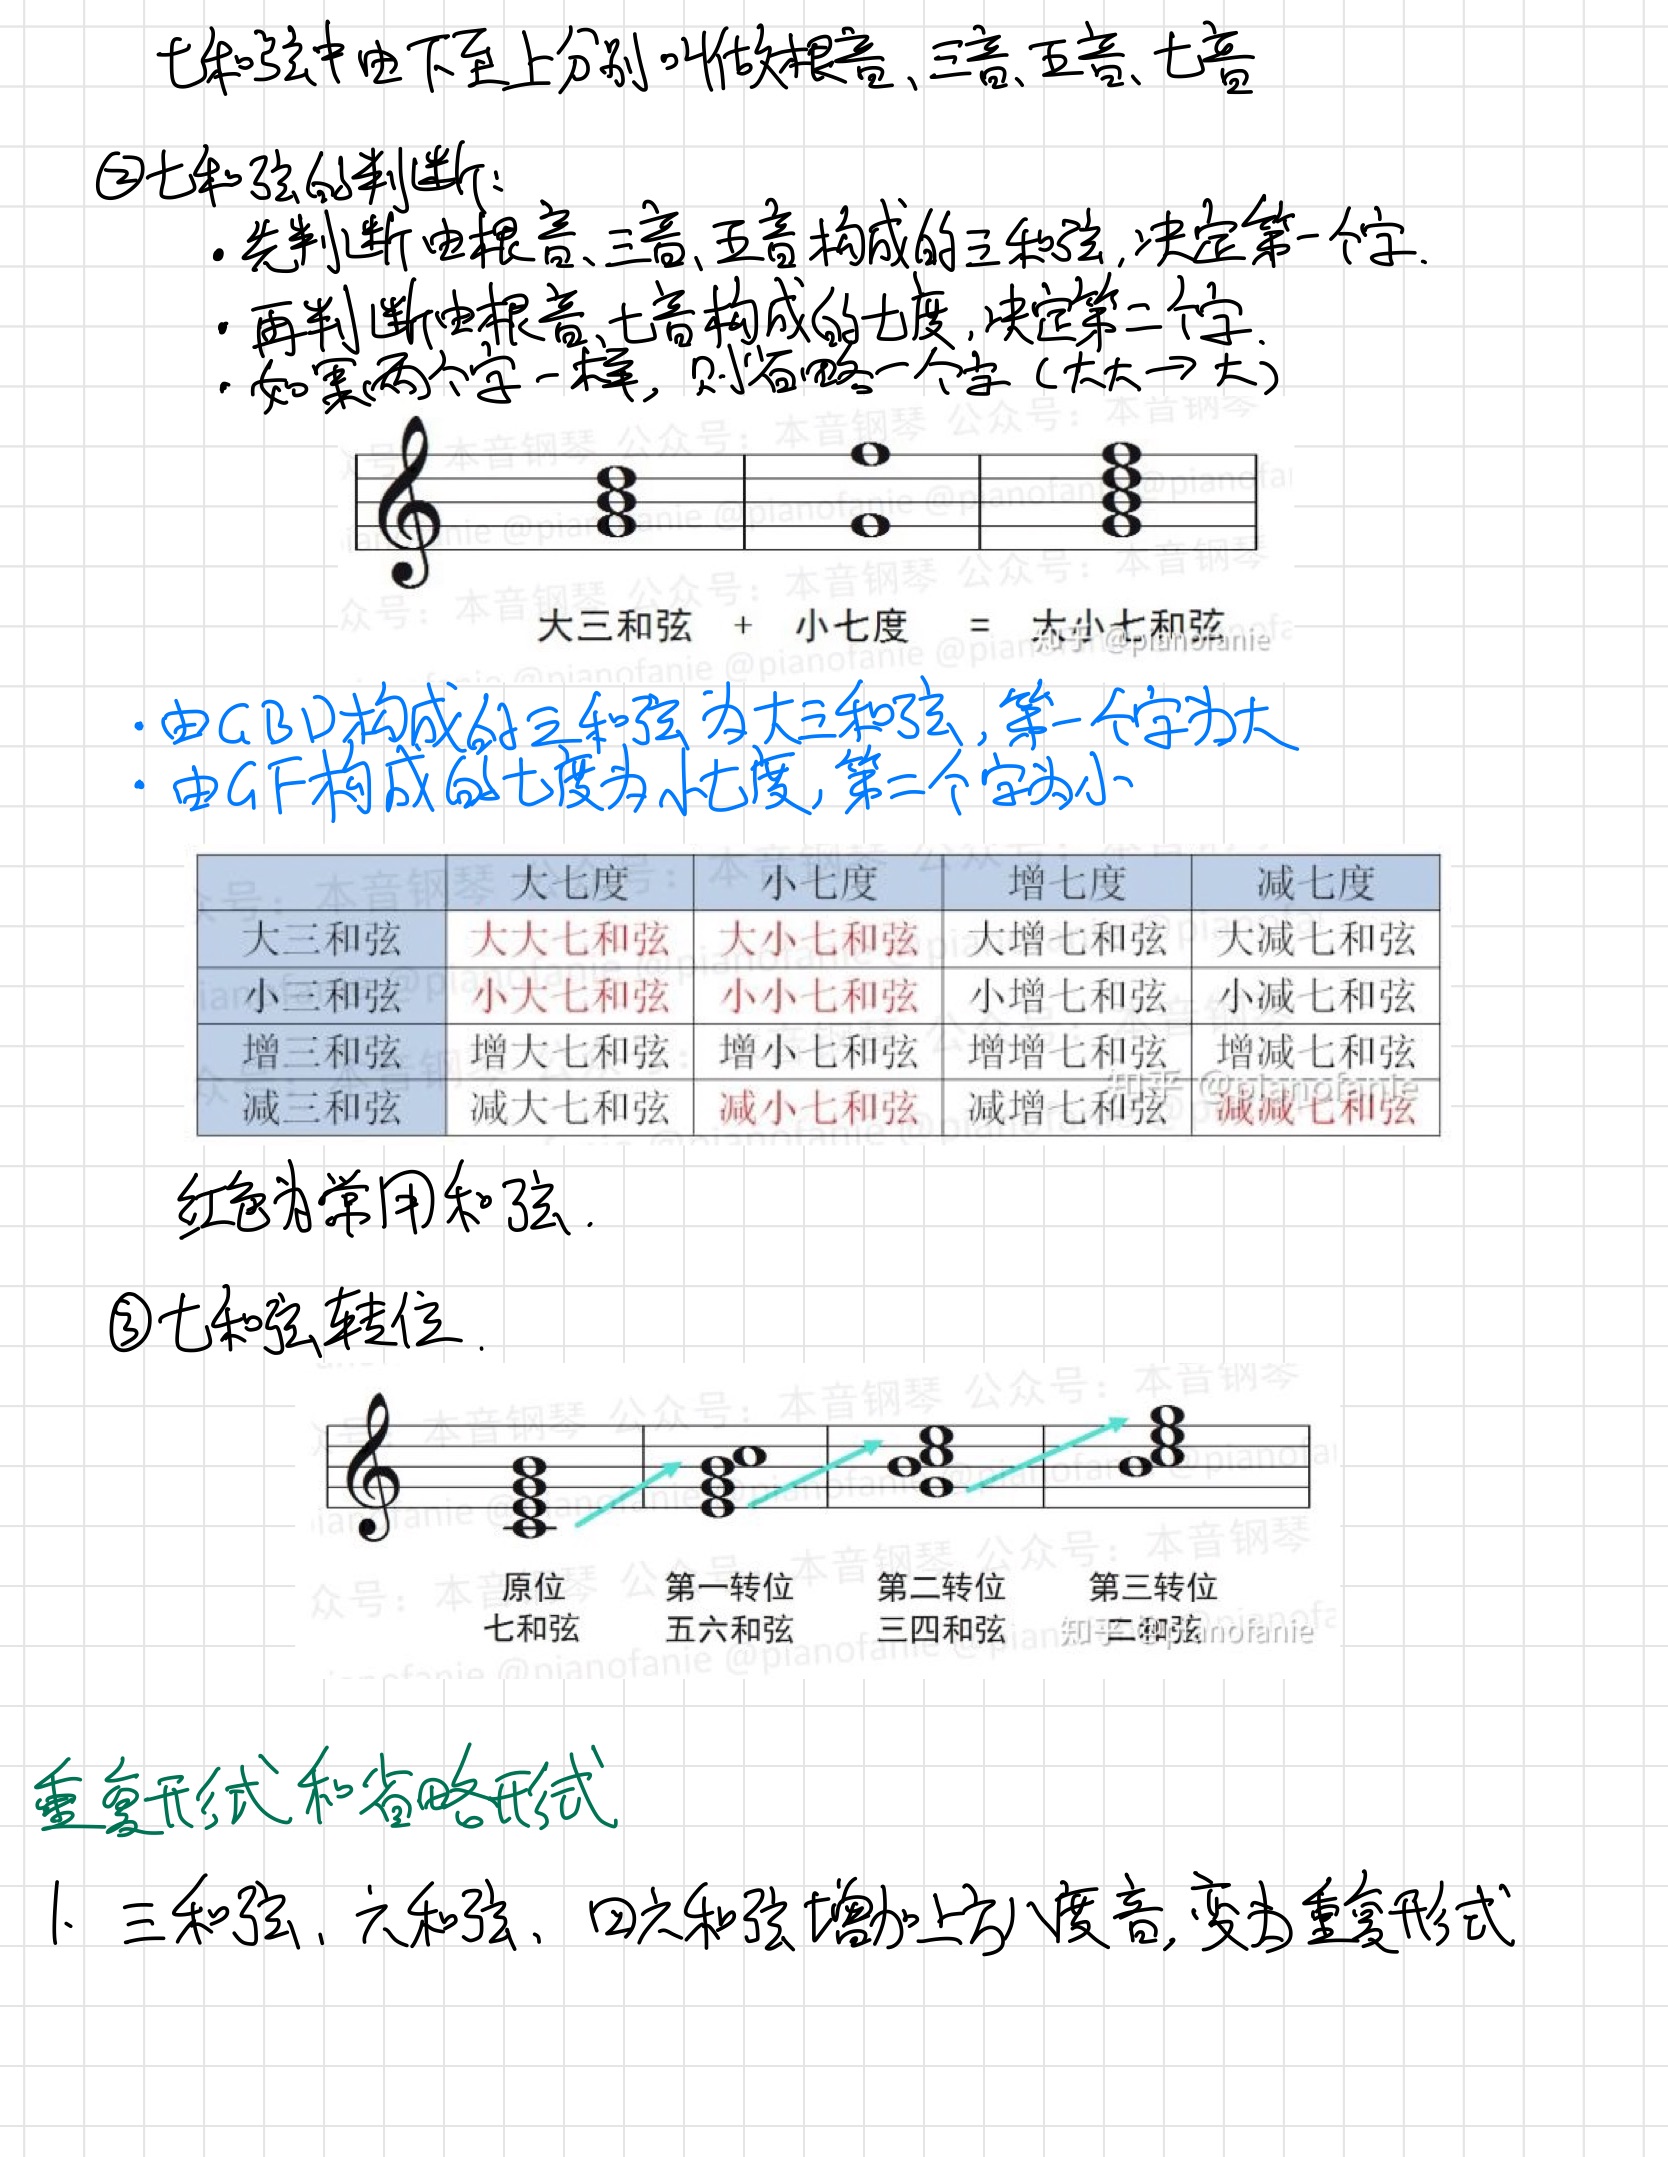 七和弦中由下至上分别叫做根音、三音、五音、七音
②七和弦的判断:
·先判断由根音、三音、五音构成的三和弦,决定第一个字.
·再判断由根音、七音构成的七度,决定第二个字.
·如果两个字一样,则省略一个字(大大→大)
大三和弦 + 小七度 = 大小七和弦
知乎 @pianofanie
·由GBD构成的三和弦为大三和弦,第一个字为大
·由GF构成的七度为小七度,第二个字为小
大七度 小七度 增七度 减七度
大三和弦 大大七和弦 大小七和弦 大增七和弦 大减七和弦
小三和弦 小大七和弦 小小七和弦 小增七和弦 小减七和弦
增三和弦 增大七和弦 增小七和弦 增增七和弦 增减七和弦
减三和弦 减大七和弦 减小七和弦 减增七和弦 减减七和弦
知乎 @pianofanie
红色为常用和弦.
③七和弦转位.
原位 第一转位 第二转位 第三转位
七和弦 五六和弦 三四和弦 二和弦
知乎 @pianofanie
重复形式和省略形式
1. 三和弦、六和弦、四六和弦增加上方八度音,变为重复形式